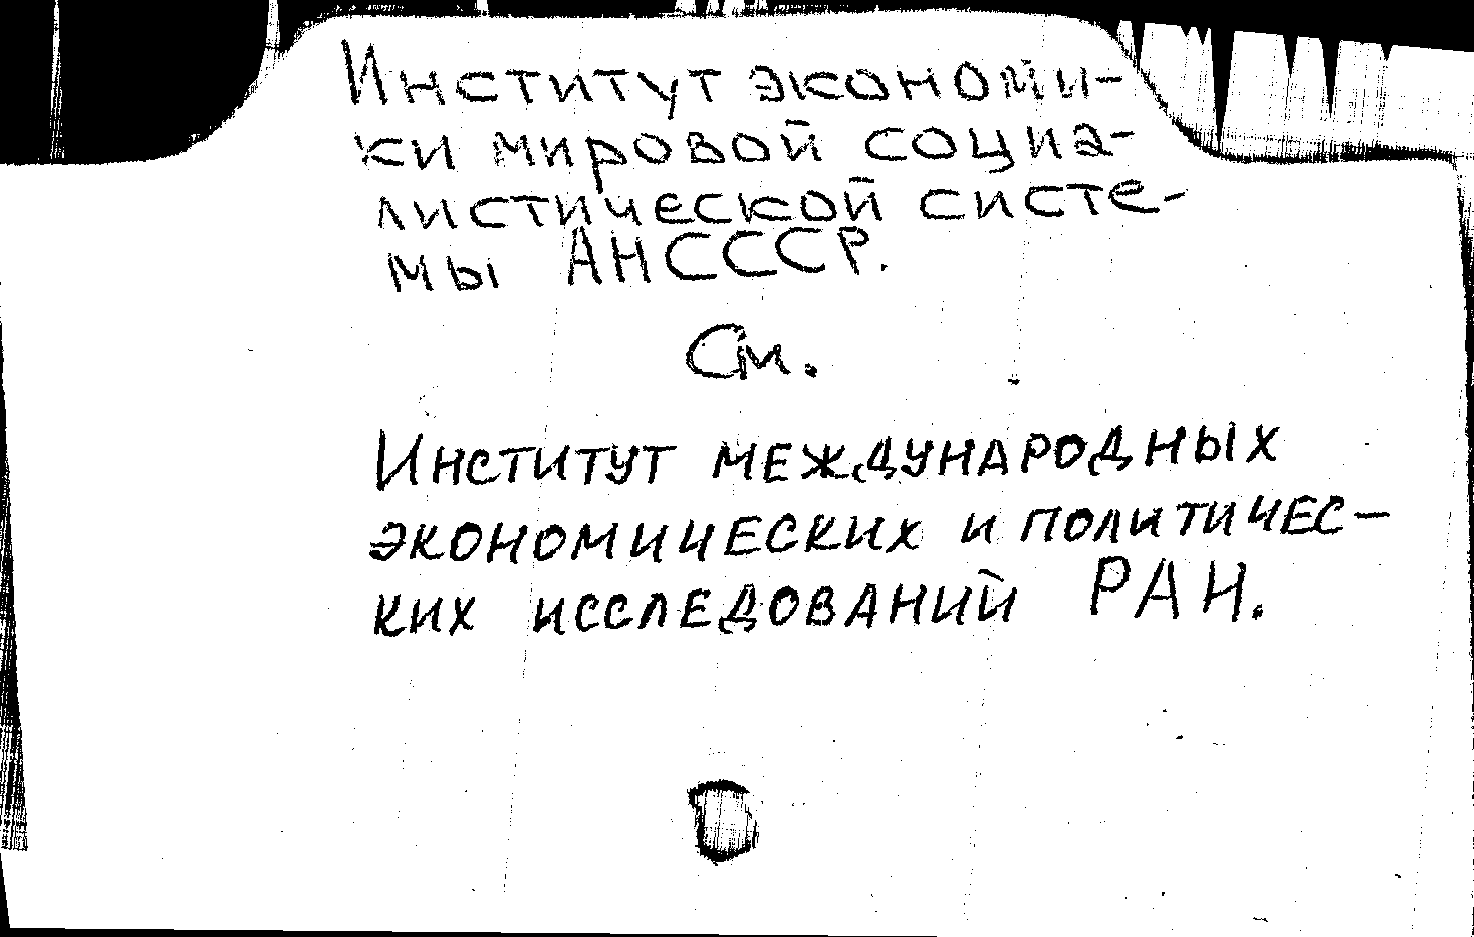 Институт экономи-
ки мировой социа-
листической систе-
мы АНСССР.
См.
Институт международных
экономических и политичес-
ких исследований РАН.